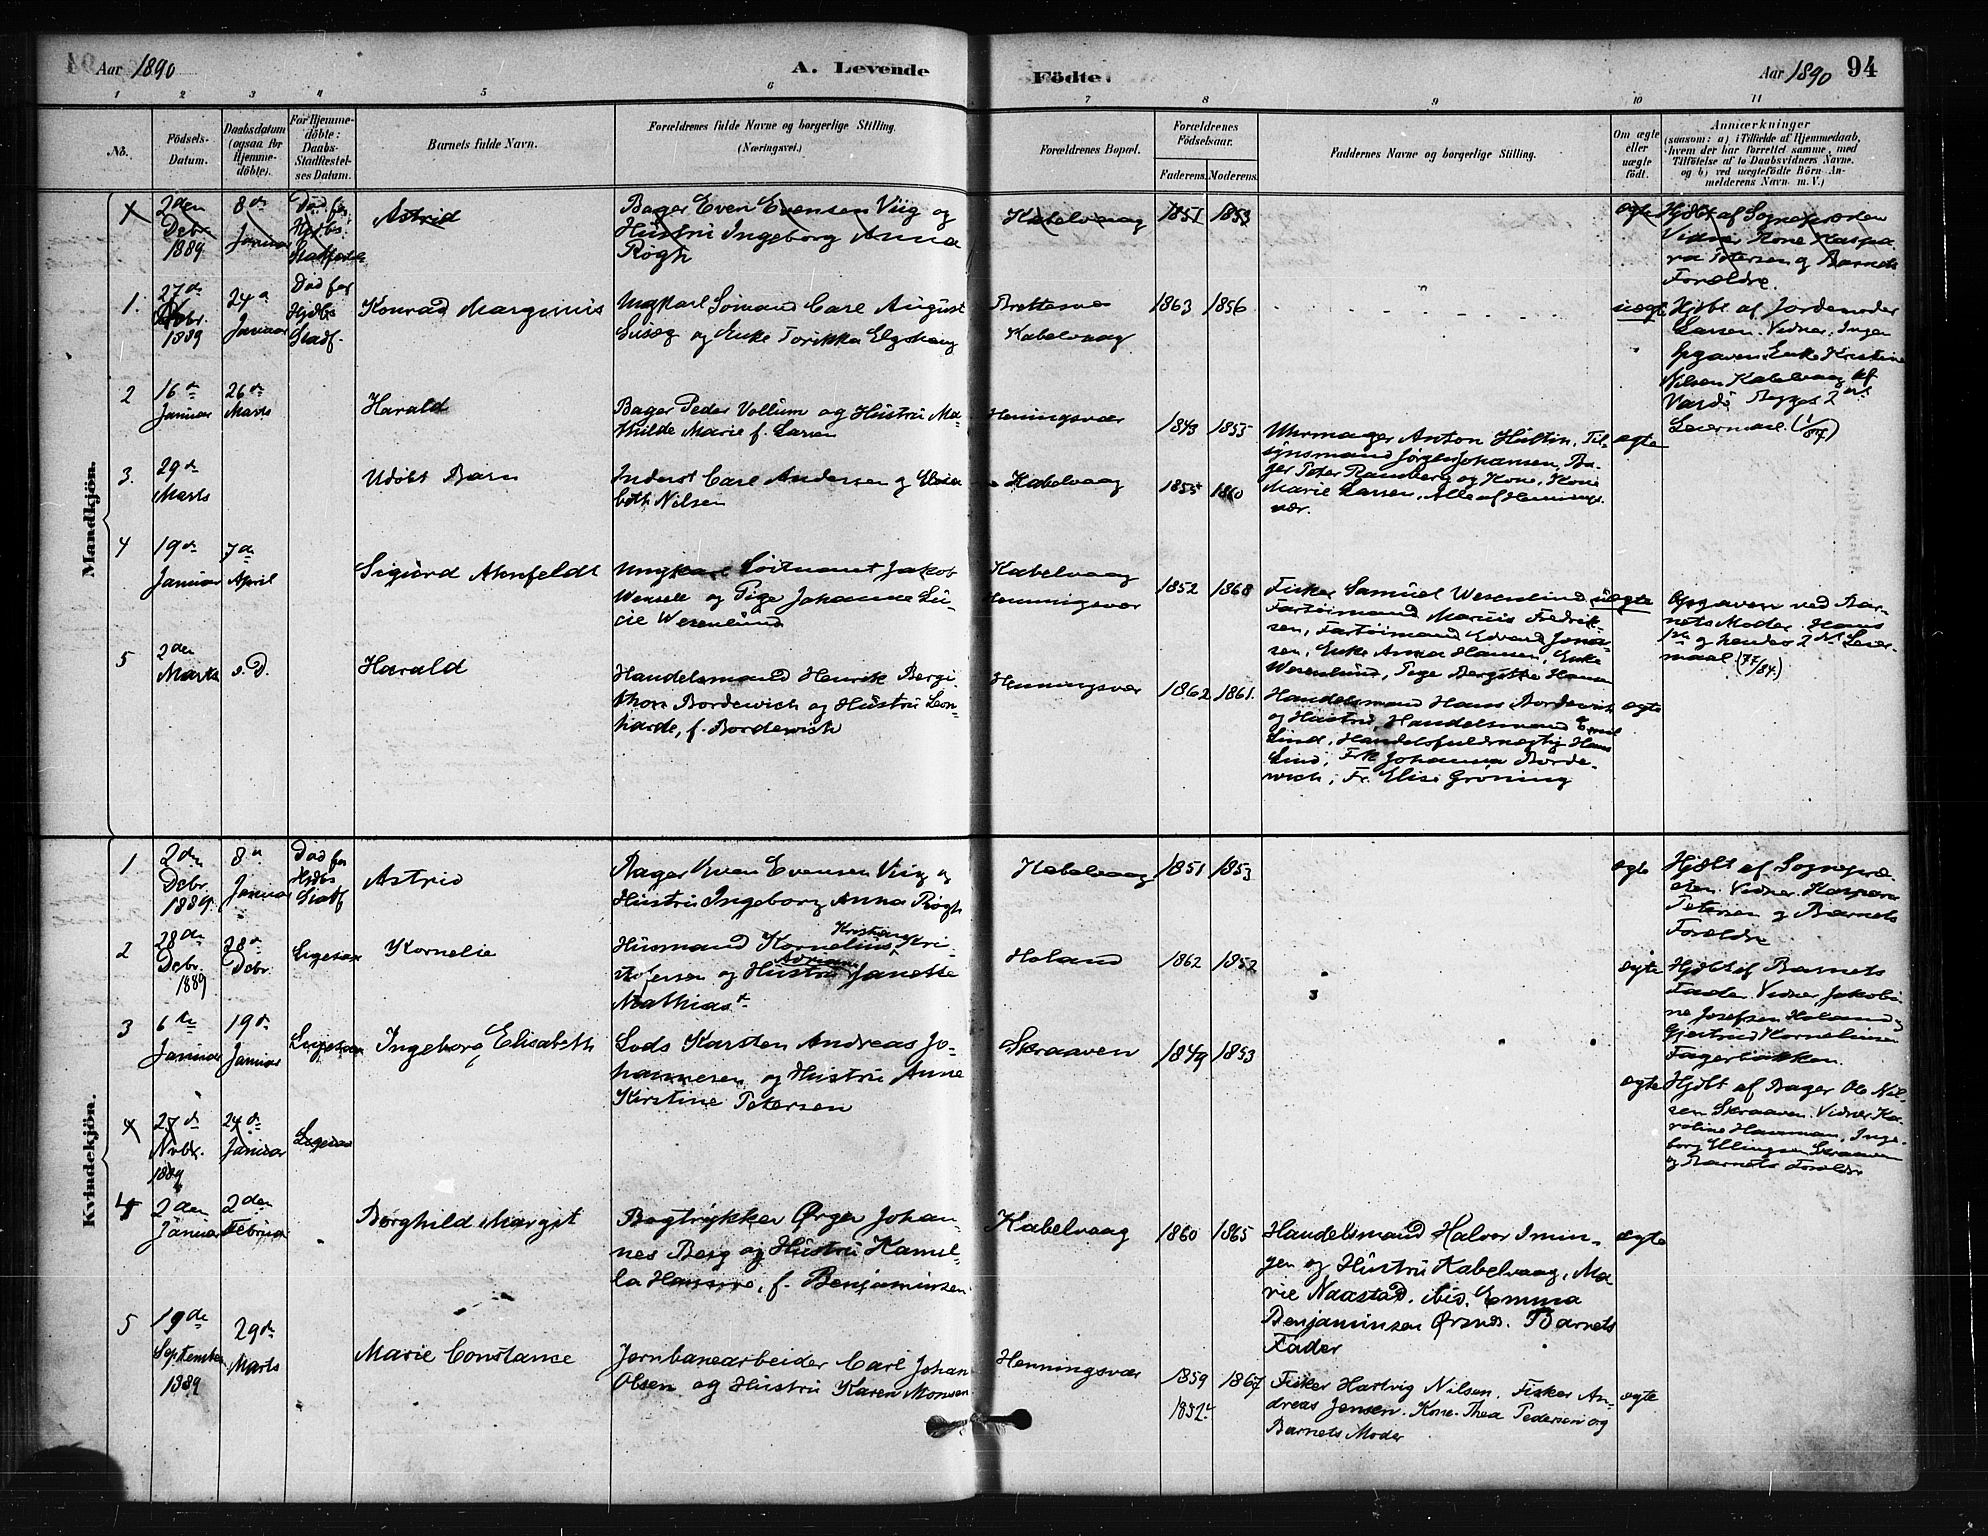 Aar 1890
A. Levende
Födte.
Aar 1890 94
1 2 3 4 5 6 7 8 9 10 11
No.
Födsels-
Datum.
Daabsdatum
(ogsaa for
Hjemme-
döbte).
For Hjemme-
döbte:
Daabs-
Stadfæstel-
ses Datum.
Barnets fulde Navn.
Forældrenes fulde Navne og borgerlige Stilling.
(Næringsvei.)
Forældrenes Bopæl.
Forældrenes
Födselsaar.
Faderens. Moderens.
Faddernes Navne og borgerlige Stilling.
Om ægte
eller
uægte
födt.
Anmærkninger
(saasom: a) i Tilfælde af Hjemmedaab,
hvem der har forrettet samme, med
Tilföielse af to Daabsvidners Navne.
og b) ved uægtefödte Börn An-
melderens Navn m. V.)
Mandkjön.
2den
Debr
1889
8de
Januar
Död før
Hjdbs.
Stadfæstel
Astrid
Bager Even Evensen Viig og
Hustru Ingeborg Anna
Røgh
Kabelvaag
1851 1853
ægte
Hjdbt af Sognepresten
Vidner Kone Kaspa
ra Petersen og Barnets
Forældre.
1.
27de
Nvbr.
1889
24de
Januar
Död før
Hjdbs
Stadf.
Konrad Marginius
Ungkarl Sömand Carl August
og Enke
Brettesnes
Kabelvaag
1863 1856
uægte
Hjdbt. af Jordemoder
Larsen. Vidner. Ingen
Opgaven: Enke Kristine
Nilsen Kabelvaag
Vardö Begges 2det
Leiermaal.
2
16de
Januar
26de
Marts
Harald
Bager Peder Vollum og Hustru Ma-
thilde Marie f. Larsen
Henningsvær
1843 1855
Uhrmager Anton Hultin, Til-
synsmand Jørgen Johansen, Ba-
ger Peter Ramberg og Kone, Kone
Marie Larsen, Alle af Hennings-
vær.
ægte
3.
29de
Marts
Udöbt Barn
Inderst Carl Andersen og Elisa
beth Nilsen
Kabelvaag
1855 1860
4
19de
Januar
7de
April
Sigurd Ahnfeldt
Ungkarl Löitnant Jakob
Wensell og Pige Johanna Lu-
cie Wesenlund
Kabelvaag
Henningsvær
1852 1868
Fisker Samuel Wesenlund,
Fartöimand Marius Fredrik-
sen, Fartöimand Edvard Jensen
sen, Enke Anna Hansen, Enke
Wesenlund, Pige Bergitte Hansen
uægte
Opgaven ved Bar-
nets Moder. Hans
1ste og hendes 2det Leier-
maal (77/84.)
5
2den
Marts
s. D.
Harald
Handelsmand Henrik Bergi-
thon Bordewich og Hustru Leon-
harde, f. Bordewich
Henningsvær
1862 1861.
Handelsmand Hans Bordewich
og Hustru, Handelsmand Emil
Lind, Handelsfuldmægtig Hans
Lind, Frk Johanna Borde-
wich, Fr. Elise Gröning
ægte
Kvindekjön.
1
2den
Debr.
1889.
8de
Januar
Död før
Hjdbs
Stadf
Astrid
Bager Even Evensen Viig og
Hustru Ingeborg Anna Røgh
Kabelvaag
1851 1853
ægte
Hjdbt af Sognepre-
sten. Vidner. Kaspara
Petersen og Barnets
Forældre
2
28de
Debr.
1889
28de
Debr.
Ligesaa
Kornelie
Husmand Kornelius Kristian Kri-
stofersen og Hustru Adriane Janette
Mathiasdt.
Holand
1862 1852
ægte
Hjdbt af Barnets
Fader. Vidner Jakobi-
ne Josefsen Holand og
Gjertrud Korneliussen
Fagerbakken.
3
6te
Januar
19de
Januar
Ligesaa
Ingeborg Elisabeth
Lods Karsten Andreas Jo-
hannesen og Hustru Anne
Kirstine Petersen
Skraaven
1849 1853
ægte
Hjdbt af Bager Ole Nil-
sen Skraaven. Vidner Ka-
roline Hansen, Inge-
borg Ellingsen Skraaven
og Barnets Forældre
4
27de
Nvbr.
1889
24de
Januar
Ligesaa
4
2den
Januar
2den
Februar
Borghild Margit
Bogtrykker Ørger Johan-
nes Berg og Hustru Kamil-
la Hansine, f. Benjaminsen
Kabelvaag
1860 1865
Handelsmand Halvor Imin-
gen og Hustru Kabelvaag, Ma-
rie Naastad. ibid. Emma
Benjaminsen Ørsnes. Barnets
Fader
ægte
5
19de
September
1889
29de
Marts
Marie Constance
Jernbanearbeider Carl Johan
Olsen og Hustru Karen Monsen
Henningsvær
1859 1867
1852.
Fisker Hartvig Nilsen. Fisker An-
dreas Jensen. Kone Thea Pedersen og
Barnets Moder
ægte